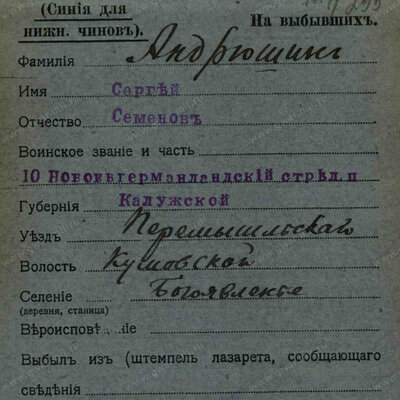 (Синія для
нижн. чиновъ).
На выбывшихъ.
Фамилія Андрюшинъ
Имя Сергѣй
Отчество Семеновъ
Воинское званіе и часть
10 Новоингерманландскій стрѣл. п
Губернія Калужской
Уѣздъ Перемышльскаго
Волость
Селеніе Богоявленье
(деревня, станица)
Вѣроисповѣданіе
Выбылъ изъ (штемпель лазарета, сообщающаго
свѣдѣнія